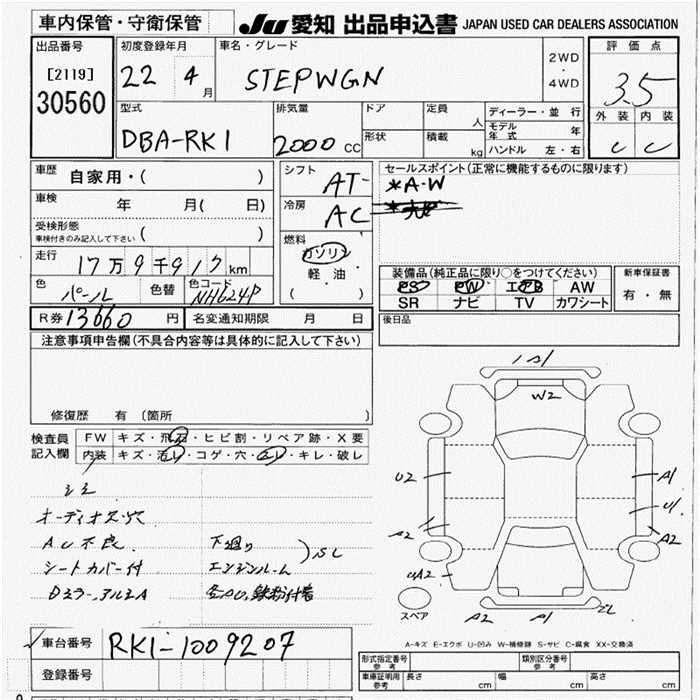 車内保管・守衛保管
JU 愛知 出品申込書 JAPAN USED CAR DEALERS ASSOCIATION
出品番号
[2119]
30560
初度登録年月
22 4月
車名・グレード
STEPWGN
2WD
・
4WD
評価点
3.5
外装 内装
C C
型式
DBA-RK1
排気量
2000 CC
ドア
形状
定員
人
積載
kg
ディーラー・並行
モデル年式 年
ハンドル 左・右
車歴
自家用・( )
車検 年 月( 日)
受検形態
車検付きのみ記入して下さい ( )
走行
17万9千917km
色
パール
色替
色コード
NH624P
シフト
AT
冷房
AC
燃料
ガソリン
軽油
( )
セールスポイント(正常に機能するものに限ります)
*A-W
装備品(純正品に限り○をつけてください)
PS PW エアB AW
SR ナビ TV カワシート
新車保証書
有・無
R券 13660円
名変通知期限 月 日
後日品
注意事項申告欄(不具合内容等は具体的に記入して下さい)
修復歴 有 (箇所 )
検査員
記入欄
FW キズ・飛石・ヒビ割・リペア跡・X要
内装 キズ・汚レ・コゲ・穴・スレ・キレ・破レ
シミ
オーディオスペース穴
AC不良
シートカバー付
Dミラー、アルミA
下廻り
エンジンルーム
)SL
全AU、鉄粉付着
1 S1
W2
U2
A2
UA2
A1
U1
A2
A2
P1
スペア
A-キズ E-エクボ U-凹み W-補修跡 S-サビ C-腐食 XX-交換済
車台番号
RK1-1009207
登録番号
形式指定番号
参考
類別区分番号
参考
車庫証明用
参考
長さ cm
幅 cm
高さ cm